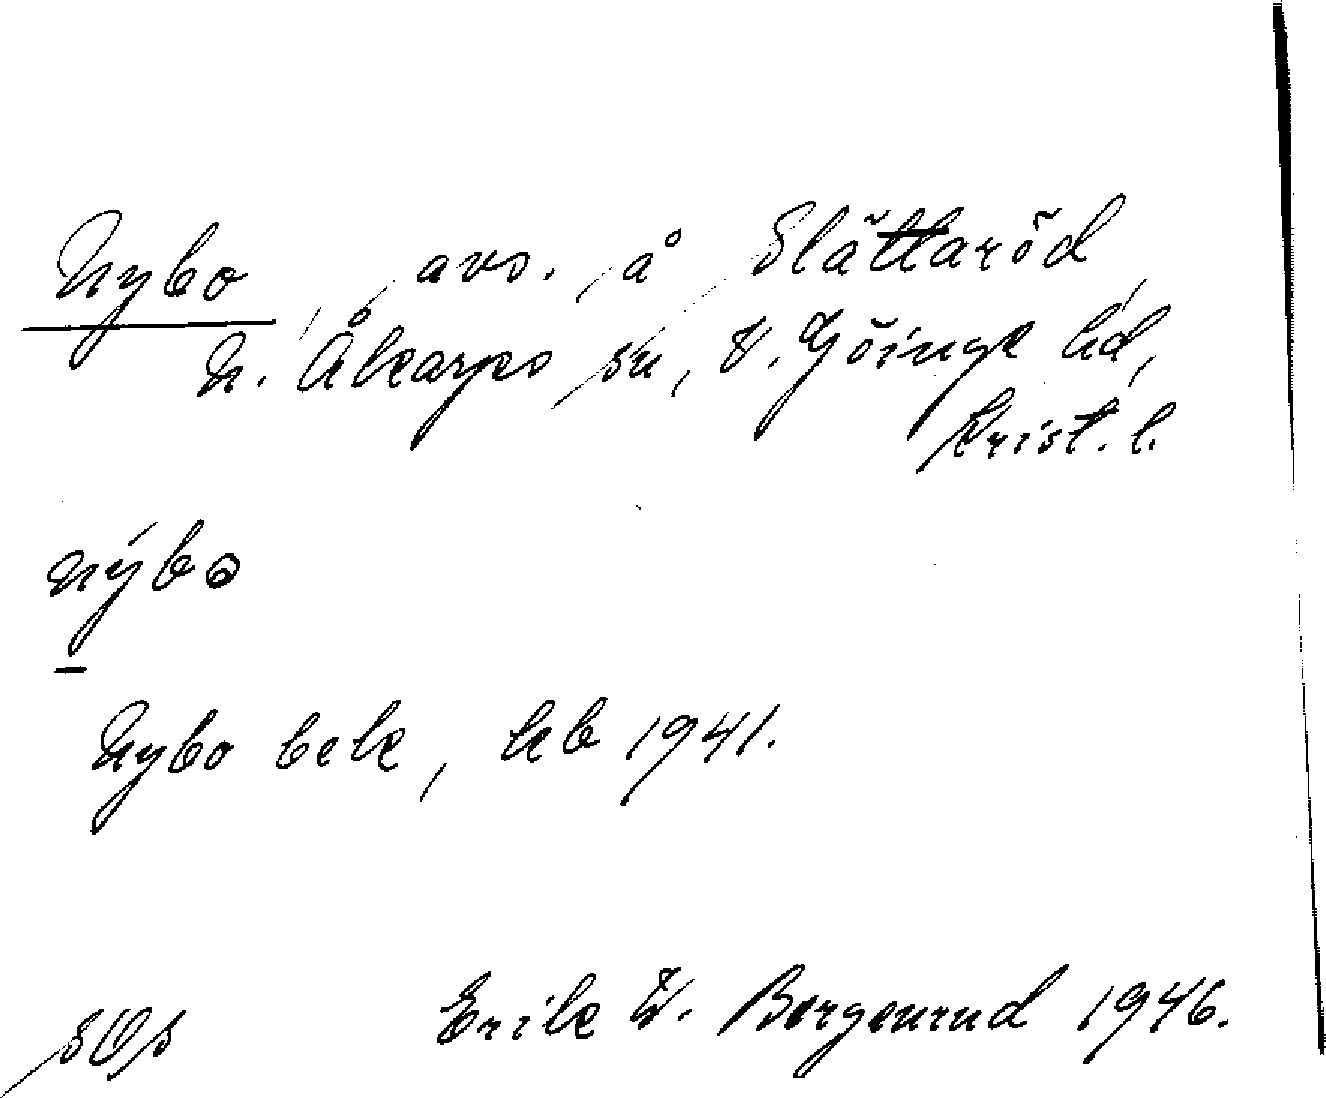 Nybo, avs. å Slättaröd
N. Åkarps sn, V. Göinge hd,
Krist. l.
nýbo
Nybo bek, kb 1941.
Erik W. Borgenrud 1946.